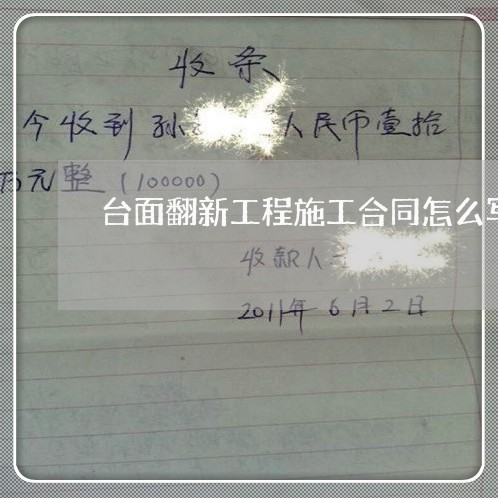 收条
今收到孙 人民币壹拾
万元整（100000）
台面翻新工程施工合同怎么写
收款人
2011年6月2日